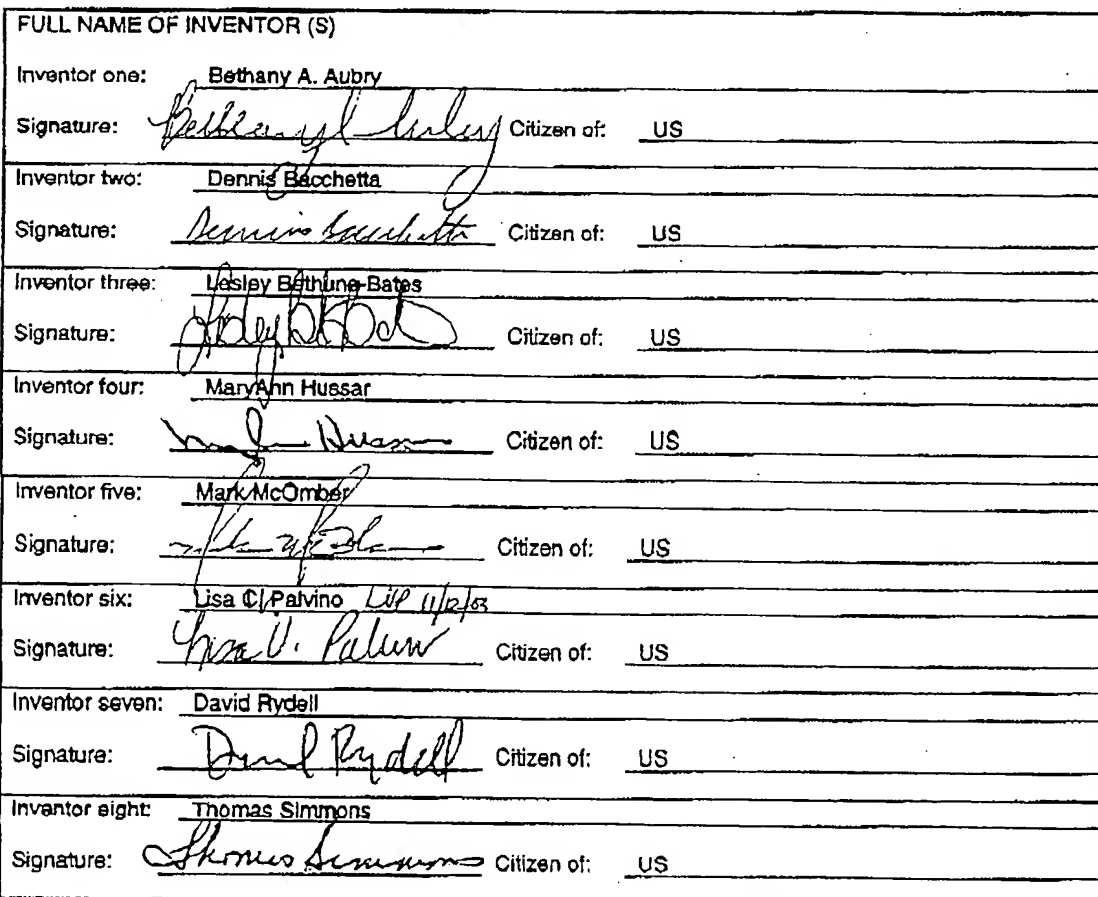 FULL NAME OF INVENTOR (S)
Inventor one: Bethany A. Aubry
Signature: Citizen of: US
Inventor two: Dennis Bacchetta
Signature: Dennis Bacchetta Citizen of: US
Inventor three: Lesley Bethune-Bates
Signature: Citizen of: US
Inventor four: MaryAnn Hussar
Signature: Citizen of: US
Inventor five: Mark McOmber
Signature: Citizen of: US
Inventor six: Lisa C. Palvino LVP 11/12/03
Signature: Lisa V. Palvino Citizen of: US
Inventor seven: David Rydell
Signature: David Rydell Citizen of: US
Inventor eight: Thomas Simmons
Signature: Thomas Simmons Citizen of: US